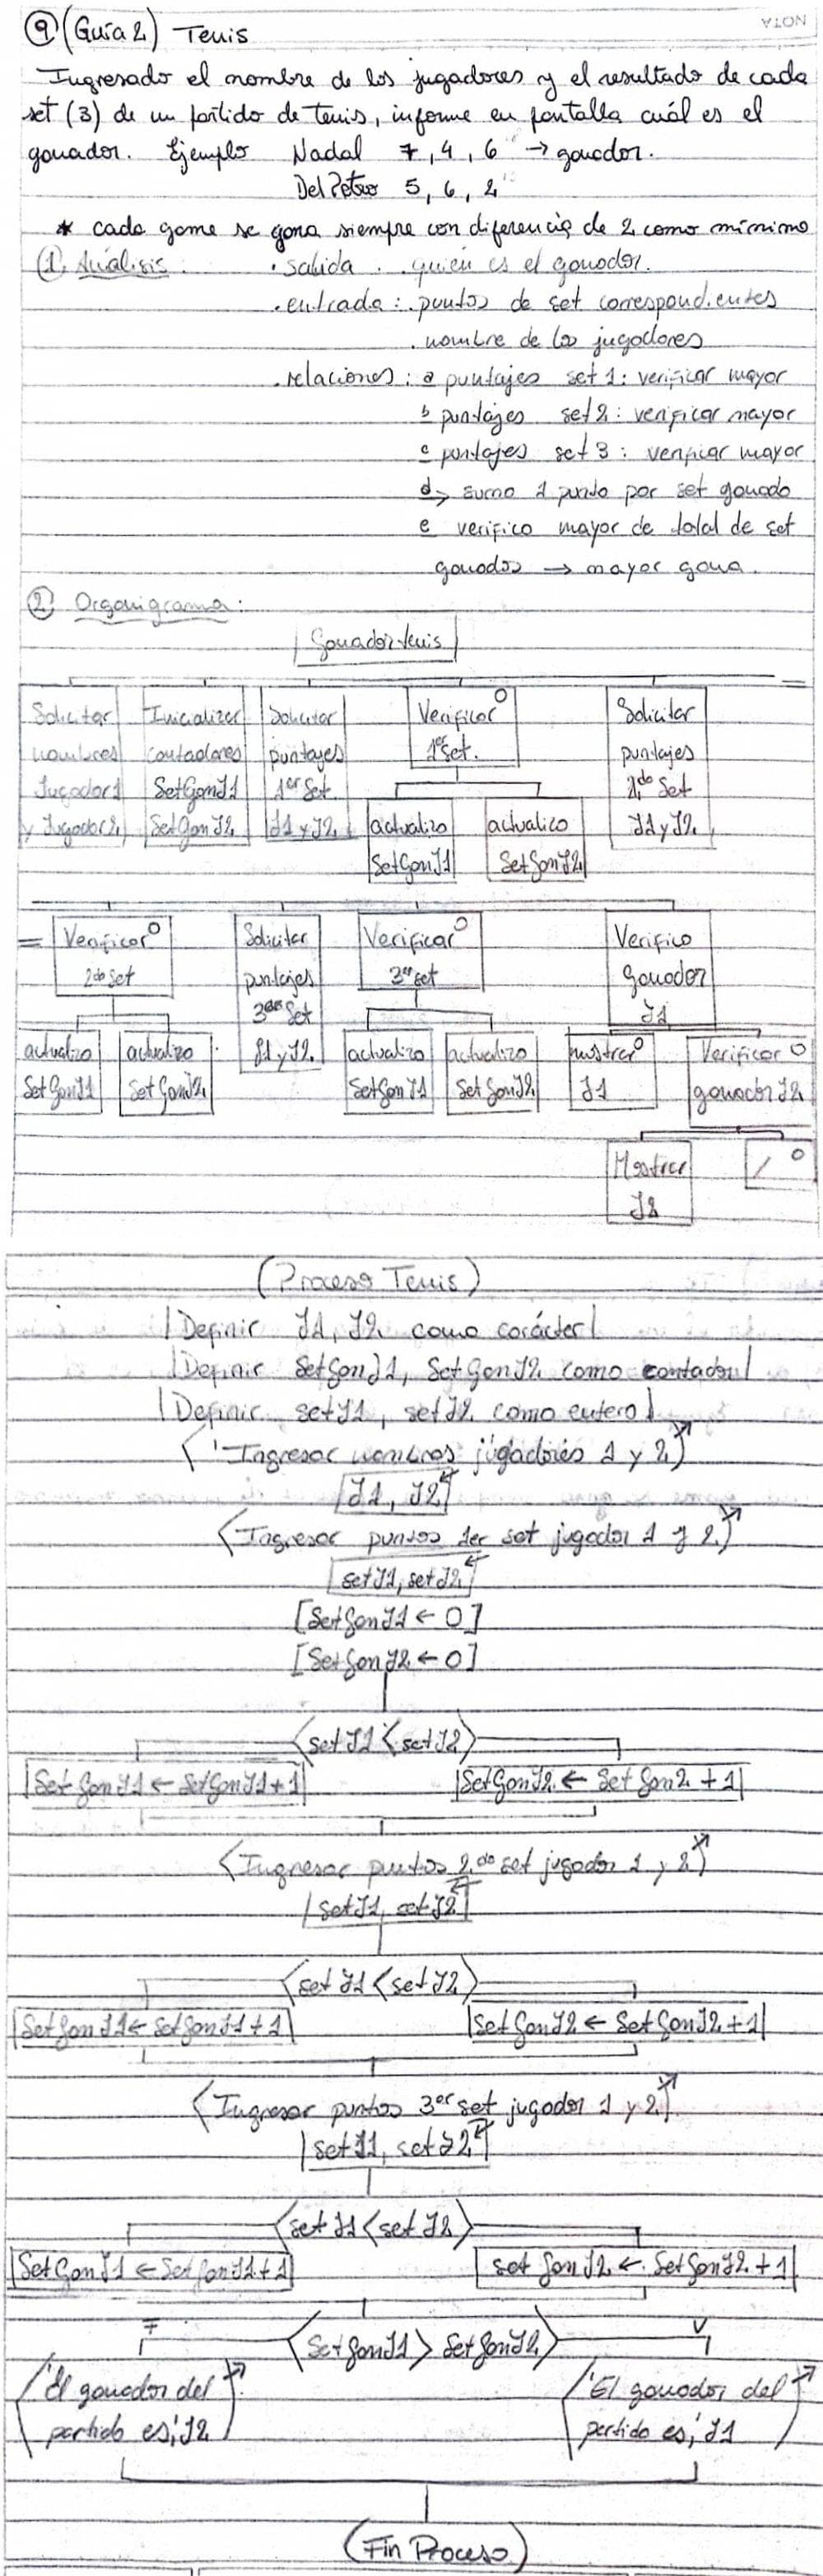 NOTA
9 (Guía 2) Tenis
Ingresado el nombre de los jugadores y el resultado de cada
set (3) de un partido de tenis, informe en pantalla cuál es el
ganador. Ejemplo Nadal 7, 4, 6 → ganador.
Del Potro 5, 6, 2
* cada game se gana siempre con diferencia de 2 como mínimo
1. Análisis: . salida . quien es el ganador.
. entrada : . puntos de set correspondientes
. nombre de los jugadores
. relaciones : a puntajes set 1 : verificar mayor
b puntajes set 2 : verificar mayor
c puntajes set 3 : verificar mayor
d → sumo 1 punto por set ganado
e verifico mayor de total de set
ganados → mayor gana.
2 Organigrama :
Ganador tenis
Solicitar nombres Jugador 1 y Jugador 2
Inicializar contadores SetGanJ1 SetGanJ2
Solicitar puntajes 1er Set J1 y J2
Verificar O 1er set.
actualizo SetGanJ1
actualizo SetGanJ2
Solicitar puntajes 2do Set J1 y J2
Verificar O 2do set
actualizo SetGanJ1
actualizo SetGanJ2
Solicitar puntajes 3er Set J1 y J2
Verificar O 3er set
actualizo SetGanJ1
actualizo SetGanJ2
Verifico Ganador J1
mostrar O J1
Verificar O ganador J2
Mostrar J2
/ O
(Proceso Tenis)
Definir J1, J2 como carácter
Definir SetGanJ1, SetGanJ2 como contador
Definir setJ1, setJ2 como entero
'Ingresar nombres jugadores 1 y 2
J1, J2
Ingresar puntos 1er set jugador 1 y 2
setJ1, setJ2
[SetGanJ1 ← 0]
[SetGanJ2 ← 0]
set J1 < set J2
SetGanJ1 ← SetGanJ1 + 1
SetGanJ2 ← SetGan2 + 1
Ingresar puntos 2do set jugador 1 y 2
setJ1, setJ2
set J1 < set J2
SetGanJ1 ← SetGanJ1 + 1
SetGanJ2 ← SetGanJ2 + 1
Ingresar puntos 3er set jugador 1 y 2
setJ1, setJ2
set J1 < set J2
SetGanJ1 ← SetGanJ1 + 1
set GanJ2 ← SetGanJ2 + 1
F SetGanJ1 > SetGanJ2 V
'El ganador del partido es,' J2
'El ganador del partido es,' J1
(Fin Proceso)